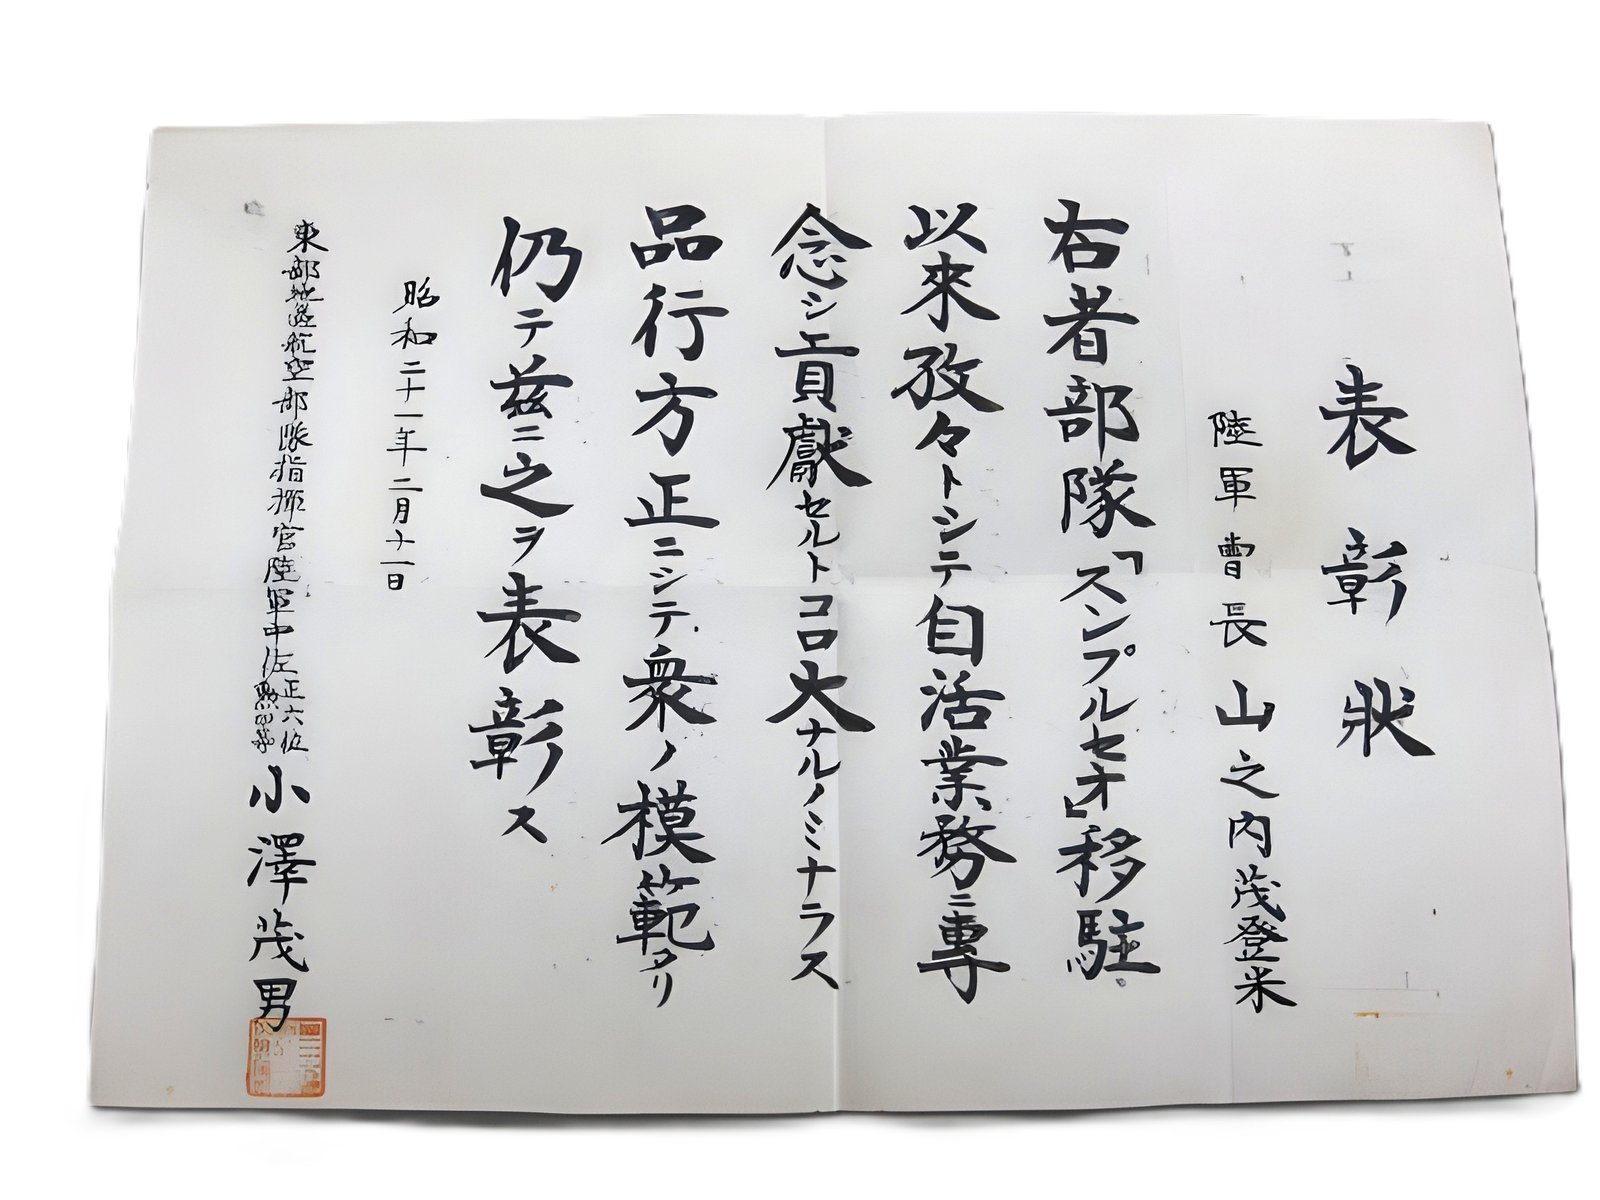 表彰状
陸軍曹長 山之内茂登米
右者部隊「スンプルセオ」移駐
以來孜々トシテ自活業務ニ専
念シ貢獻セルトコロ大ナルノミナラス
品行方正ニシテ衆ノ模範タリ
仍テ茲ニ之ヲ表彰ス
昭和二十一年二月十一日
東部地區航空部隊指揮官陸軍中佐正六位勲四等小澤茂男